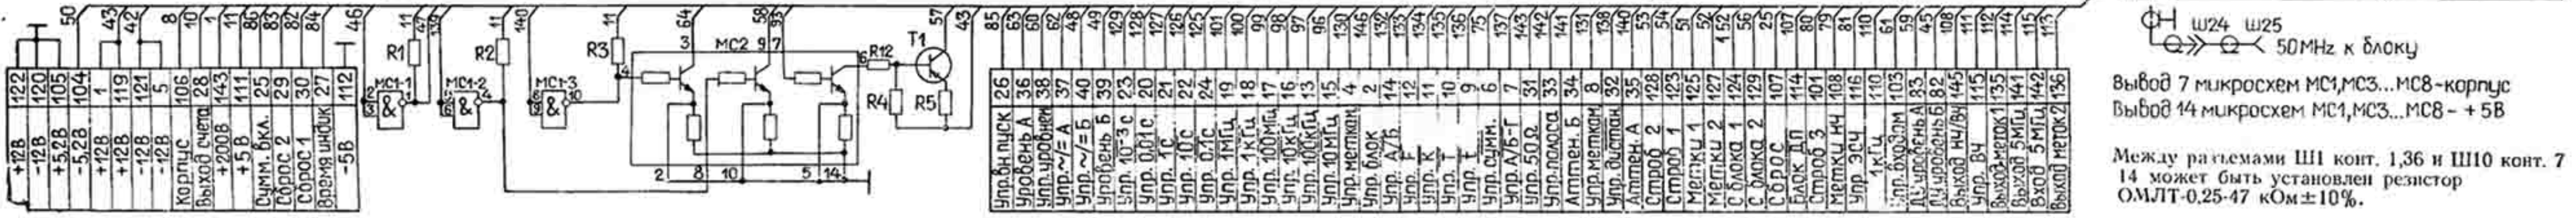 50 43 42 8 10 1 11 86 83 82 84 46
122 120 105 104 1 119 121 5 106 28 143 111 25 29 30 27 112
+12В -12В +5,2В -5,2В +12В +12В -12В -12В Корпус Выход счета +200В +5В Сумм. вкл. Сброс 2 Сброс 1 Время индик -5В
11 47 139 140 11 64 58 93 57 43
R1 R2 R3 3 МС2 9 7 6 R12 T1
МС1-1 МС1-2 МС1-3 R4 R5
& & &
2 8 10 5 14
85 63 60 62 48 49 129 128 127 126 125 101 100 99 98 97 96 130 146 132 133 134 135 136 75 137 143 142 141 131 138 140 53 54 51 52 152 56 25 107 80 79 81 110 61 59 45 108 111 112 114 115 113
26 36 38 37 40 39 23 20 21 22 24 19 18 17 16 13 15 4 2 14 12 11 10 9 6 7 31 33 34 8 32 35 128 123 125 127 124 129 107 114 101 108 116 110 103 83 82 145 115 135 141 142 136
Упр.вн.пуск Уровень А Упр.уровнем Упр.~/= А Упр.~/= Б Уровень Б Упр. 10⁻³с Упр. 0,01с Упр. 1с Упр. 10с Упр. 0,1с Упр. 1МГц Упр. 1кГц Упр. 100МГц Упр. 10кГц Упр. 100кГц Упр. 10МГц Упр.меткам. Упр. блок Упр. А/Б Упр. F Упр. К Упр. Т Упр. t Упр.симм. Упр. А/Б-Г Упр. 50Ω Упр.полоса Аттен. Б Упр.меткам Упр.дистан. Аттен. А Строб 2 Строб 1 Метки 1 Метки 2 С блока 1 С блока 2 Сброс Блок ДП Строб 3 Метки нч Упр ЭСЧ 1кГц Упр.входом ДУ уровень А ДУ уровень Б Выход нч/вч Упр. ВЧ Выход меток 1 Выход 5МГц Вход 5МГц Выход меток 2
Ш24 Ш25
50MHz к блоку
Вывод 7 микросхем МС1,МС3...МС8-корпус
Вывод 14 микросхем МС1,МС3...МС8- +5В
Между разъемами Ш1 конт. 1,36 и Ш10 конт. 7
14 может быть установлен резистор
ОМЛТ-0,25-47 кОм±10%.